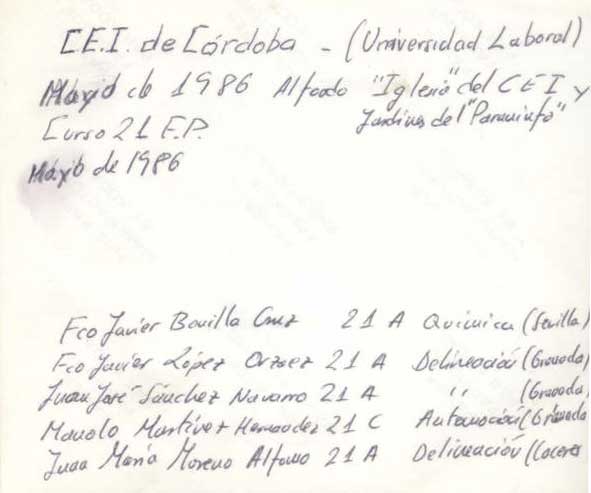 C.E.I. de Córdoba - (Universidad Laboral)
Mayo de 1986 Al fondo "Iglesia" del CEI y
Curso 21 E.P. Jardines del "Paraninfo"
Mayo de 1986
Fco Javier Bonilla Cruz 21 A Química (Sevilla)
Fco Javier López Orzaez 21 A Delineación (Granada)
Juan José Sánchez Navarro 21 A " (Granada)
Manolo Martínez Hernandez 21 C Automoción (Granada
Juan María Moreno Alfonso 21 A Delineación (Caceres